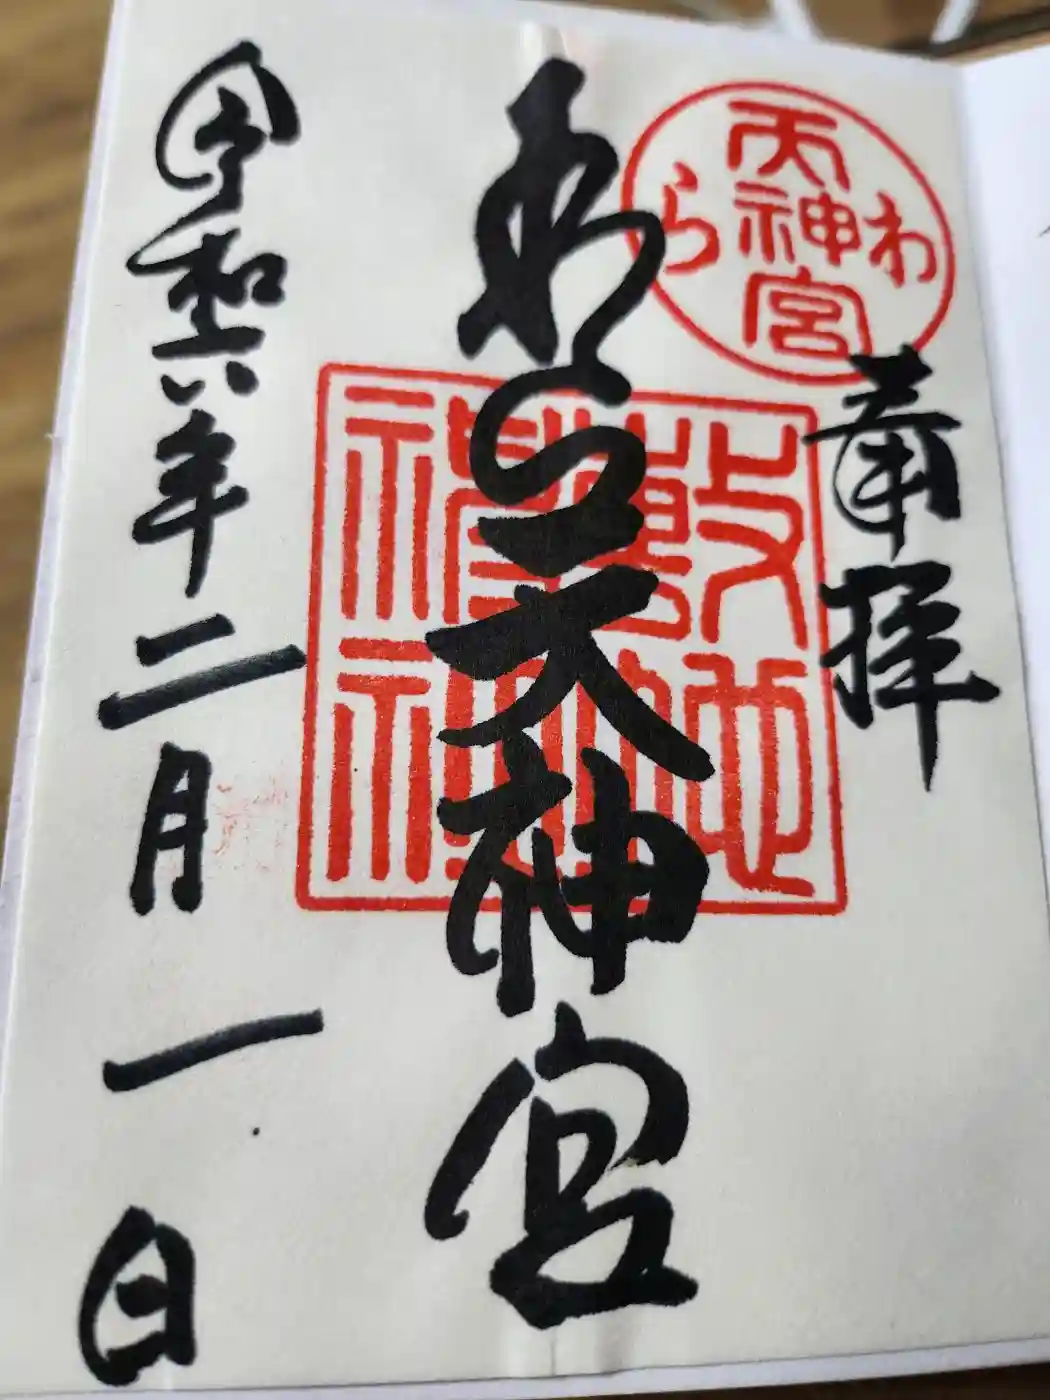 奉拝
わら天神宮
わら天神宮
敷地
令和六年二月一日